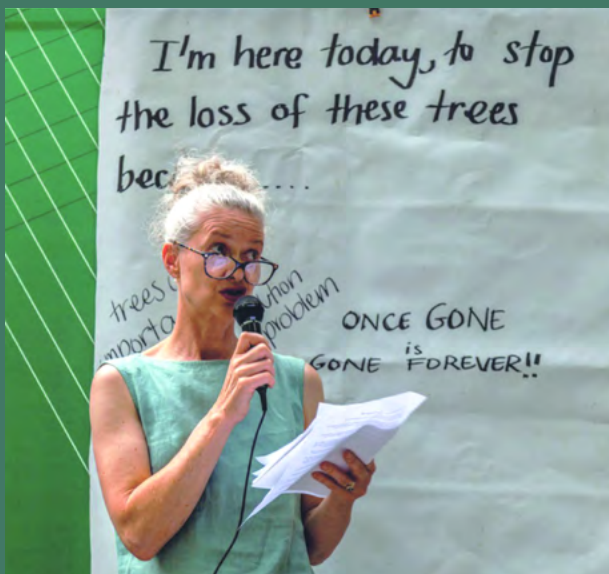 I'm here today, to stop
the loss of these trees
bec.....
trees
problem
ONCE GONE
GONE is FOREVER!!